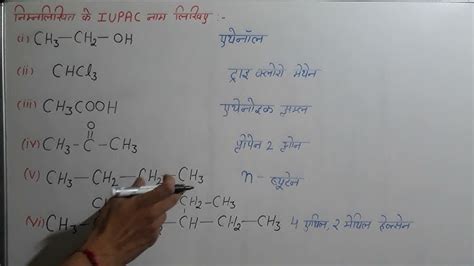 निम्नलिखित के IUPAC नाम लिखिए :-
(i) CH₃—CH₂—OH एथेनॉल
(ii) CHCl₃ ट्राइ क्लोरो मेथेन
(iii) CH₃COOH एथेनोइक अम्ल
O
(iv) CH₃—C—CH₃ प्रोपेन 2 ओन
(v) CH₃—CH₂—CH₂—CH₃ n-ब्यूटेन
CH₂—CH₃
(vi) CH₃— CH—CH₂—CH₃ 4 एथिल, 2 मेथिल हेक्सेन